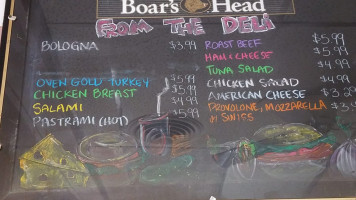 Boar's Head
FROM THE DELI
BOLOGNA $3.99
OVEN GOLD TURKEY $5.99
CHICKEN BREAST $5.99
SALAMI $4.99
PASTRAMI (HOT) $5.99
ROAST BEEF $5.99
HAM & CHEESE $5.99
TUNA SALAD $4.99
CHICKEN SALAD $4.99
AMERICAN CHEESE $3.29
PROVOLONE, MOZZARELLA
or SWISS